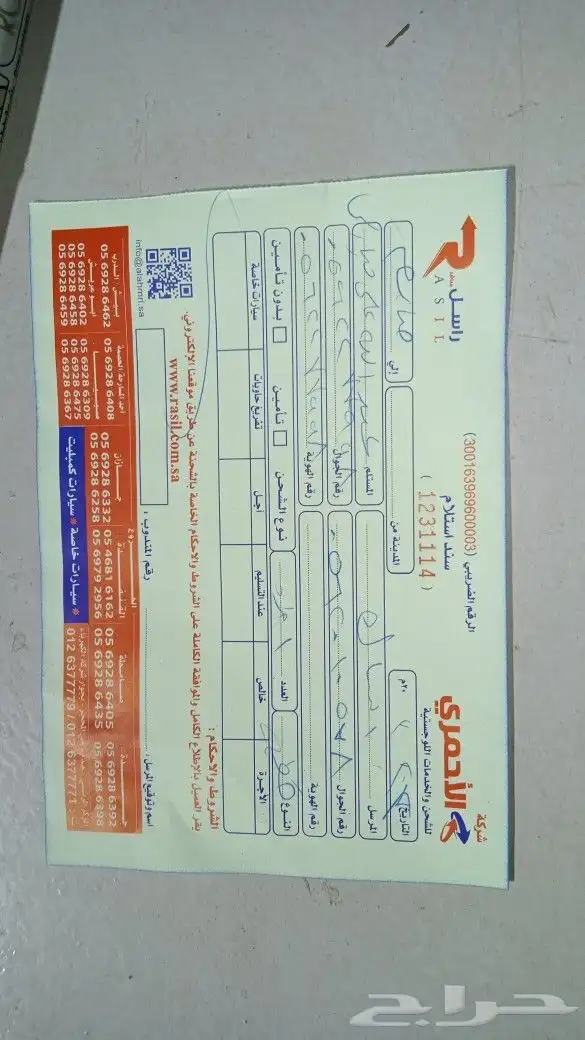 شركة
الأحمري
للشحن والخدمات اللوجستية
راسل
RASIL
الرقم الضريبي (300163969600003)
سند استلام
( 1231114 )
التاريخ
٢٠م
المدينة من
إلى
المرسل
المستلم
رقم الجوال
رقم الجوال
رقم الهوية
رقم الهوية
النوع
العدد
نوع الشحن
تأمين
بدون تأمين
الأجرة
خالص
عند التسليم
آجل
تفريغ حاويات
سيارات خاصة
الشروط والأحكام :
يقر العميل بالإطلاع الكامل والموافقة الكاملة على الشروط والاحكام الخاصة بالشحنة عن طريق موقعنا الإلكتروني.
www.rasil.com.sa
info@alahmri.sa
اسم وتوقيع المرسل :
رقم المندوب :
الفروع
جدة
05 6928 6392
05 6928 6398
05 6928 6405
05 6928 6435
القنفذة
05 4681 6162
05 6979 2956
جازان
05 6928 6332
05 6928 6258
احد المسارحة الخمسة
05 6928 6408
صبيا
05 6928 6399
05 6928 6475
05 6928 6367
05 6928 6462
أبو عريش
05 6928 6402
05 6928 6458
05 6928 6459
012 6377779 / 012 6377771
* سيارات خاصة * سيارات كمبليت *
حراج